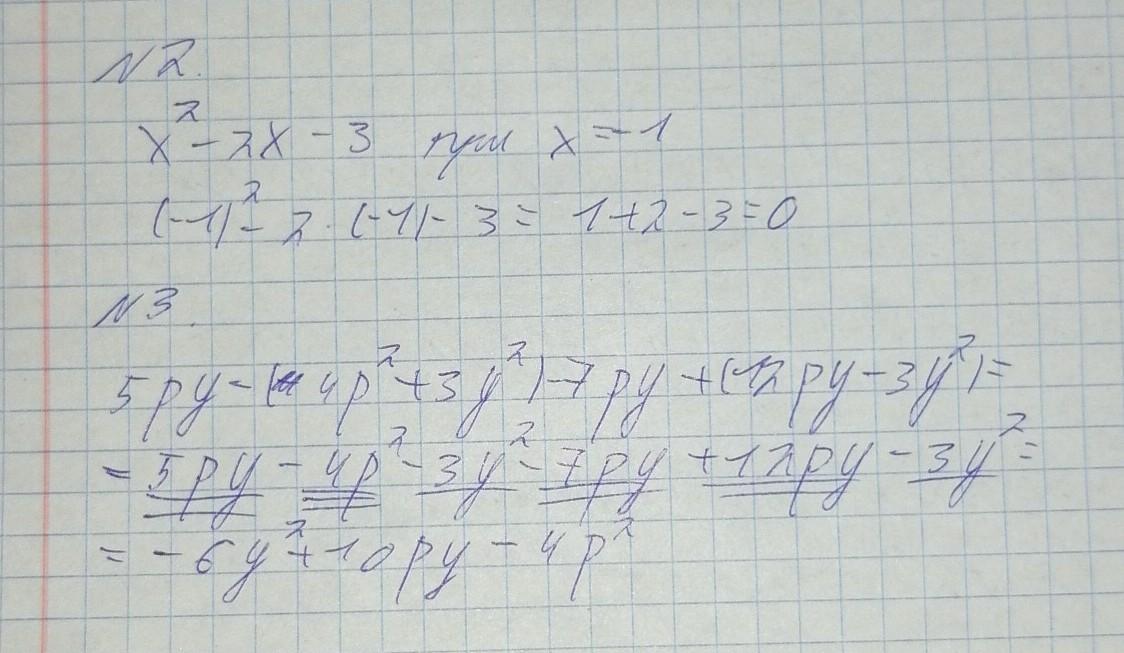 N2.
x² - 2x - 3 при x = -1
(-1)² - 2 · (-1) - 3 = 1 + 2 - 3 = 0
N3.
5py - (4p² + 3y²) - 7py + (12py - 3y²) =
= 5py - 4p² - 3y² - 7py + 12py - 3y² =
= -6y² + 10py - 4p²